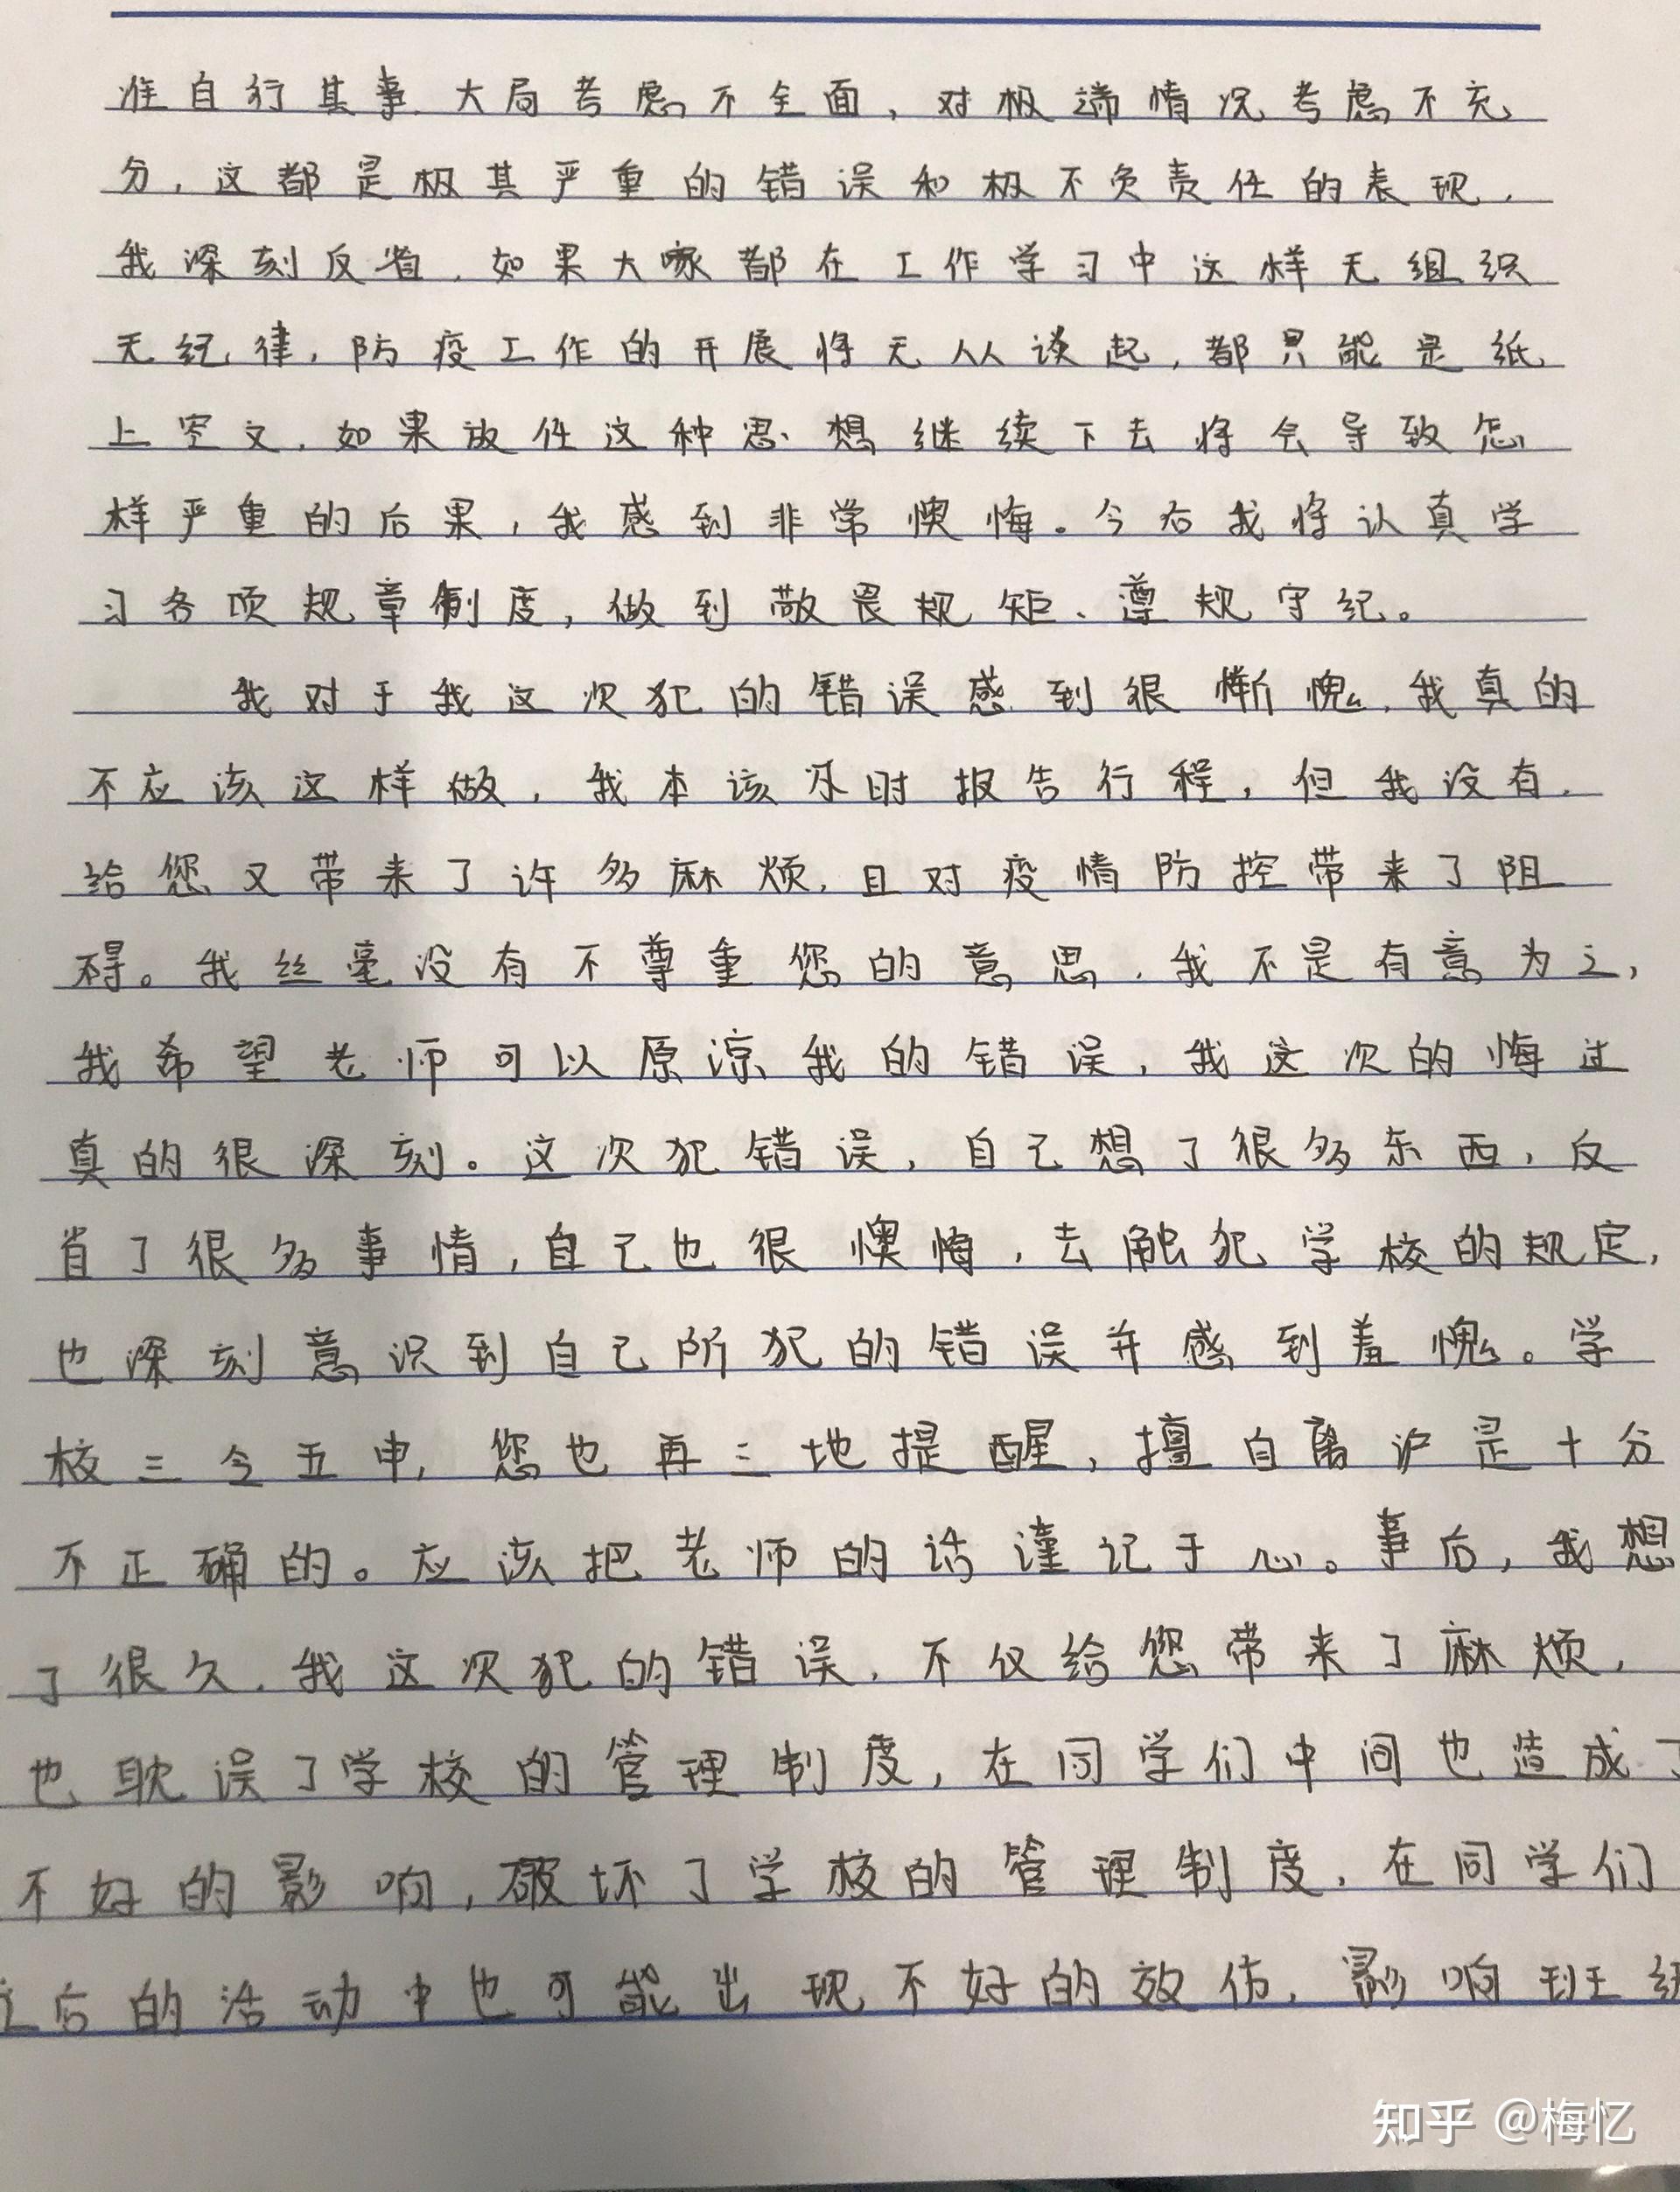 准自行其事.大局考虑不全面，对极端情况考虑不充
分，这都是极其严重的错误和极不负责任的表现，
我深刻反省，如果大家都在工作学习中这样无组织
无纪律，防疫工作的开展将无从谈起，都只能是纸
上空文，如果放任这种思想继续下去将会导致怎
样严重的后果，我感到非常懊悔。今后我将认真学
习各项规章制度，做到敬畏规矩、遵规守纪。
我对于我这次犯的错误感到很惭愧，我真的
不应该这样做，我本该及时报告行程，但我没有.
给您又带来了许多麻烦，且对疫情防控带来了阻
碍。我丝毫没有不尊重您的意思，我不是有意为之，
我希望老师可以原谅我的错误，我这次的悔过
真的很深刻。这次犯错误，自己想了很多东西，反
省了很多事情，自己也很懊悔，去触犯学校的规定，
也深刻意识到自己所犯的错误并感到羞愧。学
校三令五申，您也再三地提醒，擅自离沪是十分
不正确的。应该把老师的话谨记于心。事后，我想
了很久，我这次犯的错误，不仅给您带来了麻烦，
也耽误了学校的管理制度，在同学们中间也造成了
不好的影响，破坏了学校的管理制度，在同学们
之后的活动中也可能出现不好的效仿，影响班级
知乎 @梅忆